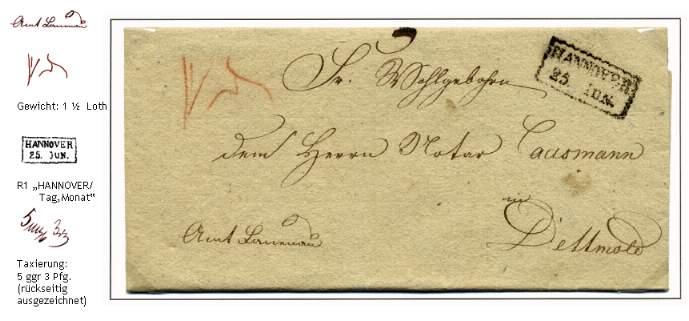 Amt Lauenau
Gewicht: 1 ½ Loth
HANNOVER
25. JUN.
R1 „HANNOVER/
Tag,Monat“
5 ggr 3
Taxierung:
5 ggr 3 Pfg.
(rückseitig
ausgezeichnet)
HANNOVER
25. JUN.
Sr. Wohlgebohrn
dem Herrn Notar Causmann
in
Amt Lauenau
Dettmold